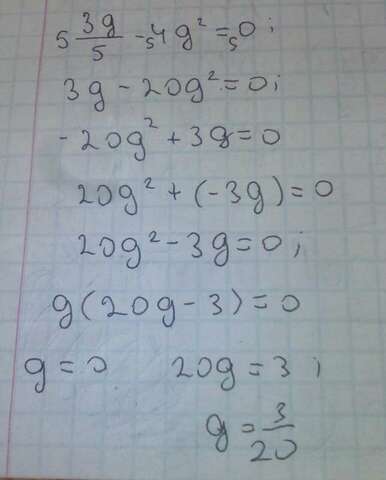 5 3g/5 - 5 4g² = 5 0;
3g - 20g² = 0;
- 20g² + 3g = 0
20g² + (-3g) = 0
20g² - 3g = 0;
g(20g - 3) = 0
g = 0 20g = 3;
g = 3/20